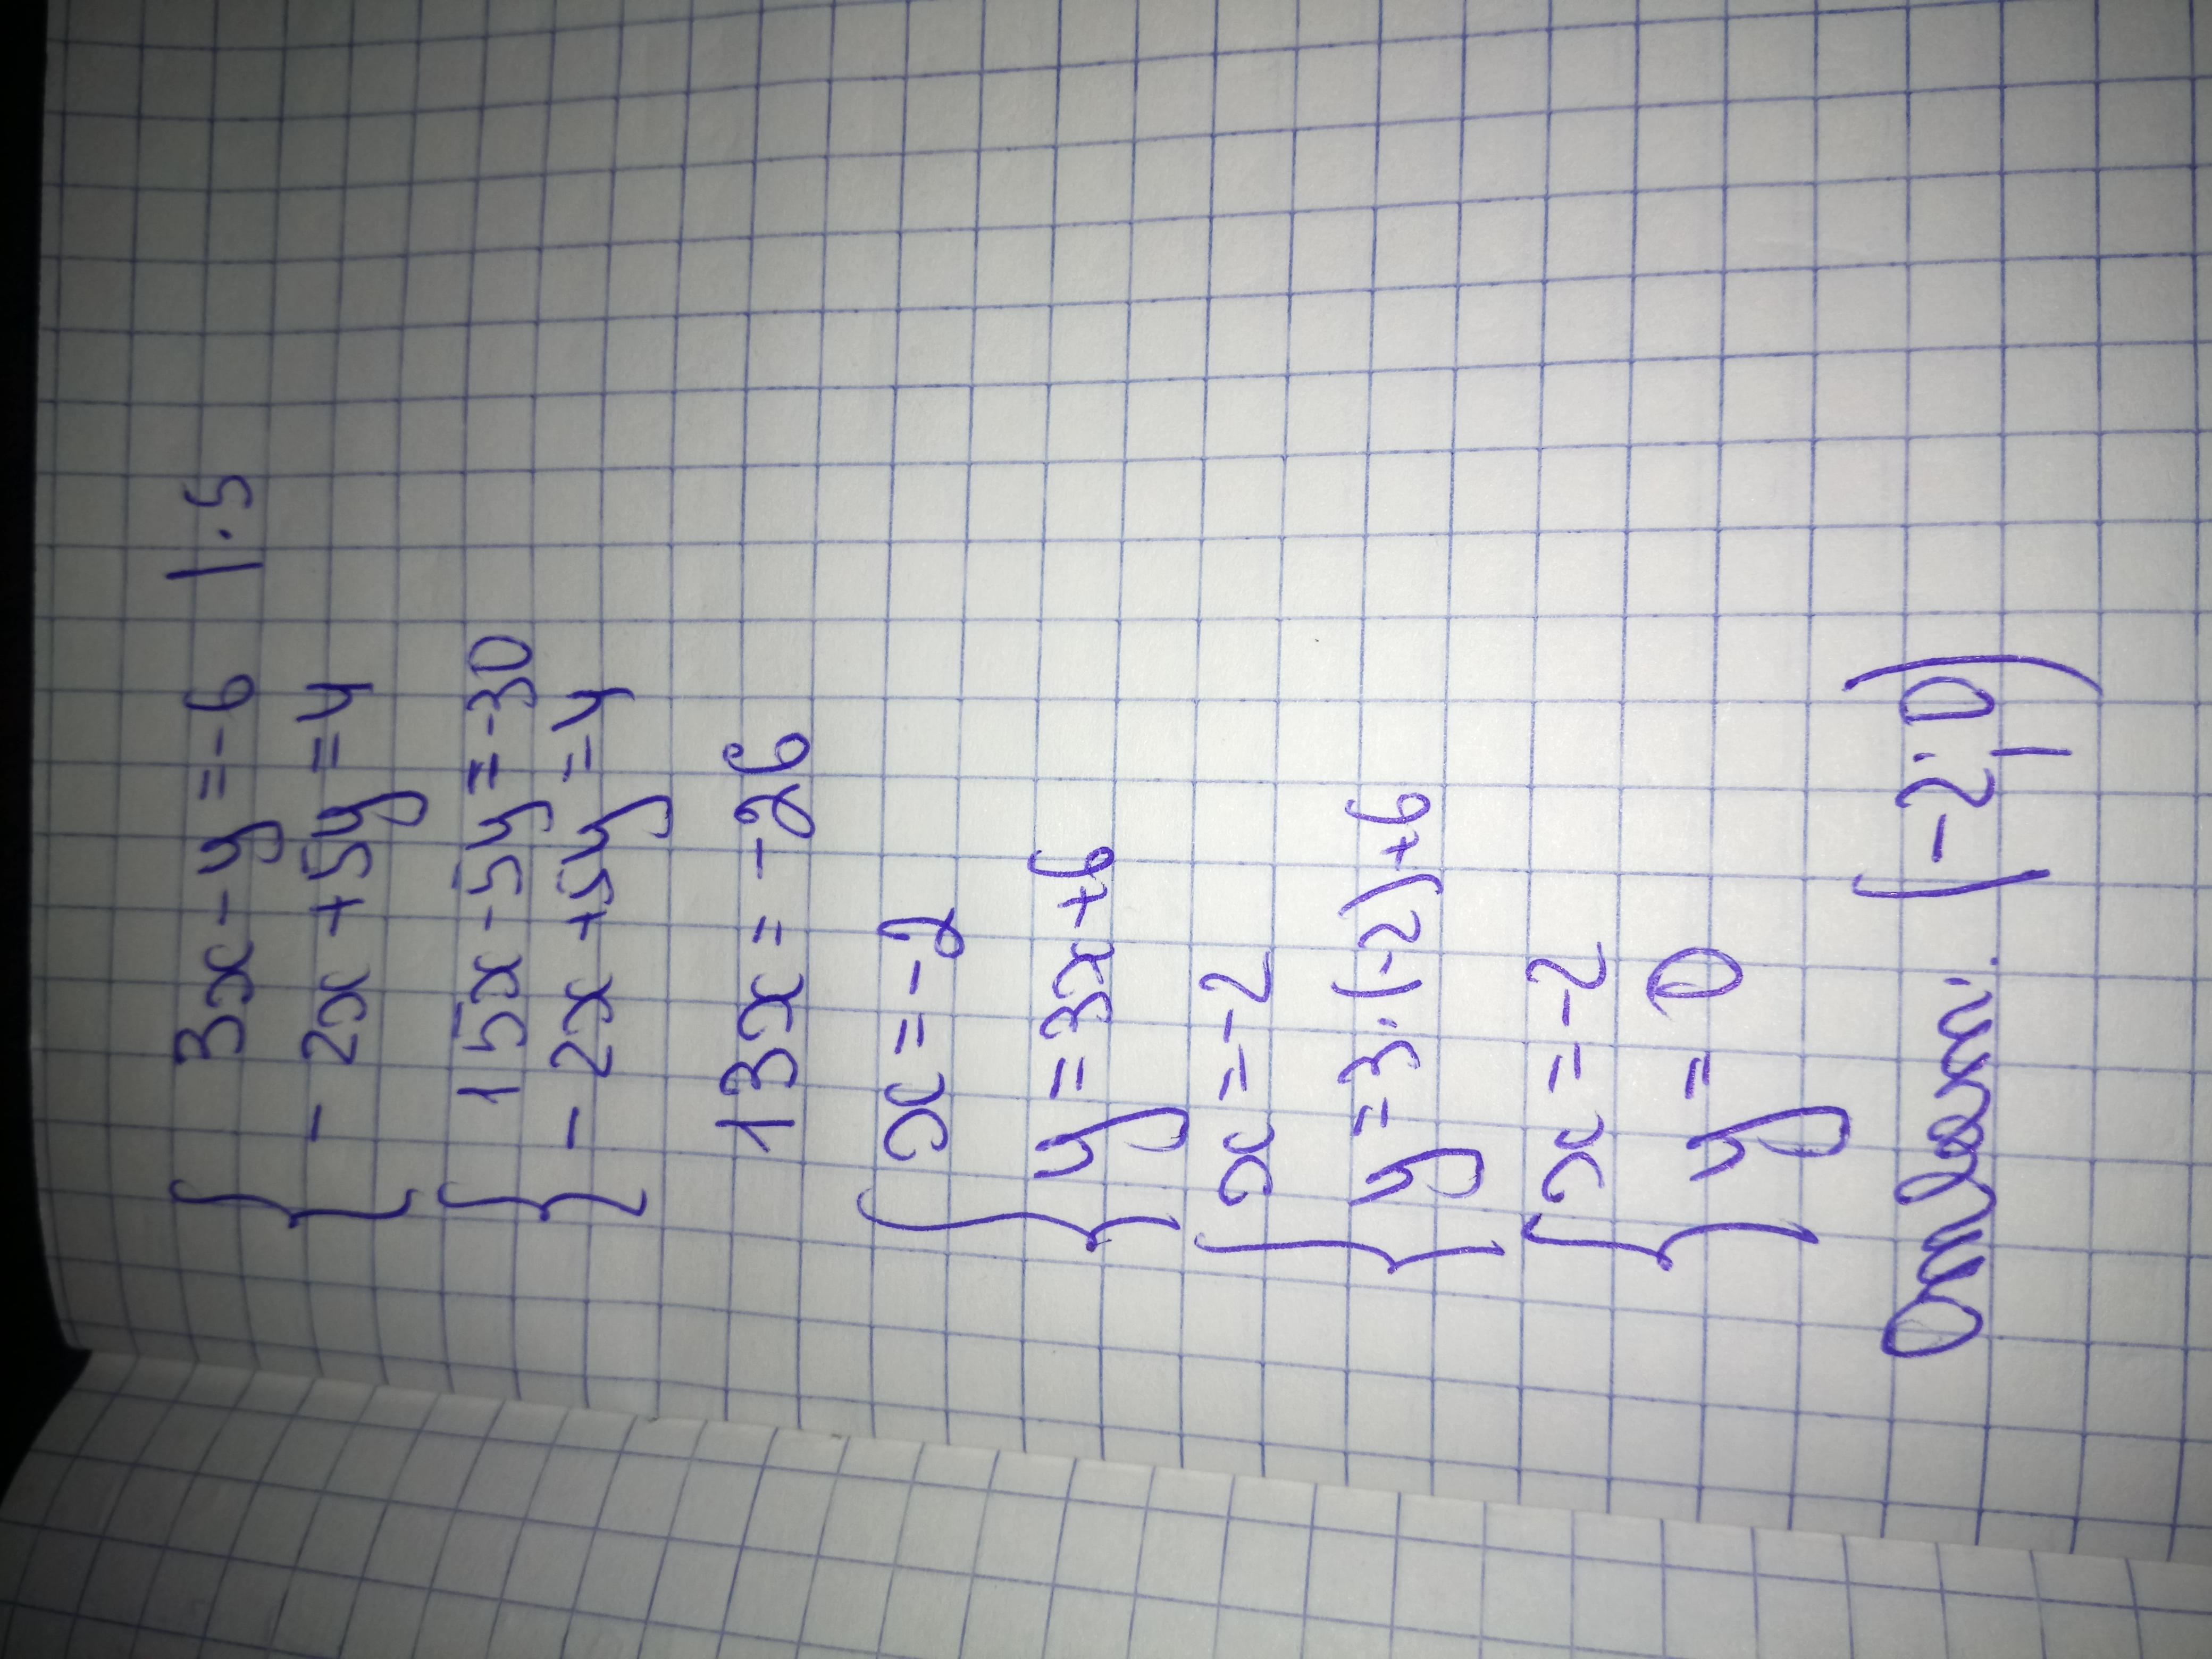 3x - y = -6 | · 5
- 2x + 5y = 4
15x - 5y = -30
- 2x + 5y = 4
13x = -26
x = -2
y = 3x + 6
x = -2
y = 3 · (-2) + 6
x = -2
y = 0
Ответ: (-2; 0)